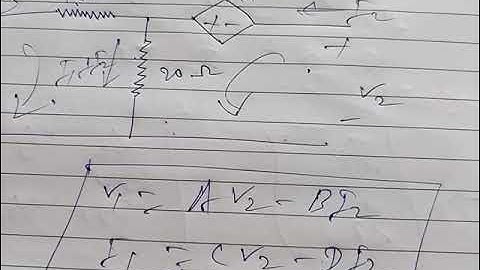 + -
I2
+
I1+I2
20 Ω
V2
-
V1 = A V2 - BI2
I1 = C V2 - DI2